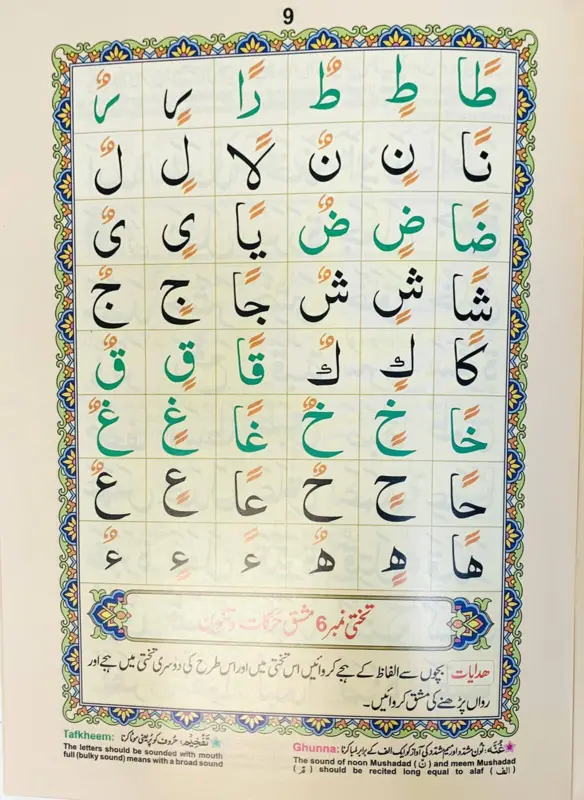 9
طًا طٍ طٌ رًا رٍ رٌ
نًا نٍ نٌ لًا لٍ لٌ
ضًا ضٍ ضٌ يًا یٍ یٌ
شًا شٍ شٌ جًا جٍ جٌ
كًا كٍ كٌ قًا قٍ قٌ
خًا خٍ خٌ غًا غٍ غٌ
حًا حٍ حٌ عًا عٍ عٌ
هًا هٍ هٌ ءً ءٍ ءٌ
تختی نمبر 6 مشق حرکات وتنوین
ھدایات بچوں سے الفاظ کے ہجے کروائیں اس تختی میں اور اس طرح کی دوسری تختی میں ہجے اور
رواں پڑھنے کی مشق کروائیں۔
غُنَّہ: نون مشدد اور میم مشدد کی آواز کو ایک الف کے برابر لمبا کرنا
Ghunna:
The sound of noon Mushadad (نّ) and meem Mushadad
(مّ) should be recited long equal to alaf (الف)
تَفْخِیْم: حروف کو پُر یعنی موٹا کرنا
Tafkheem:
The letters should be sounded with mouth
full (bulky sound) means with a broad sound